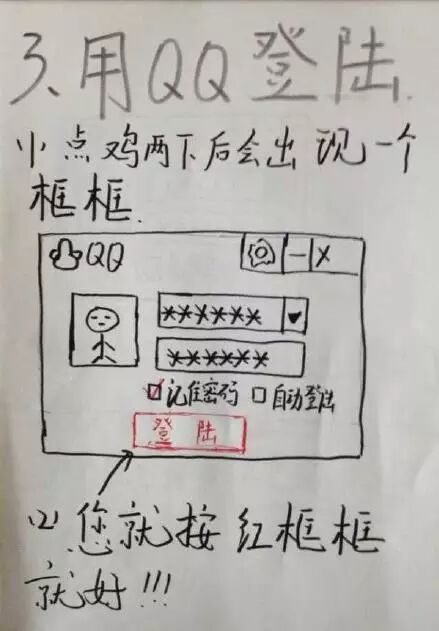 3、用QQ登陆.
(1)点鸡两下后会出现一个
框框.
QQ
- X
******
******
记住密码 自动登陆
登 陆
(2)您就按红框框
就好!!!